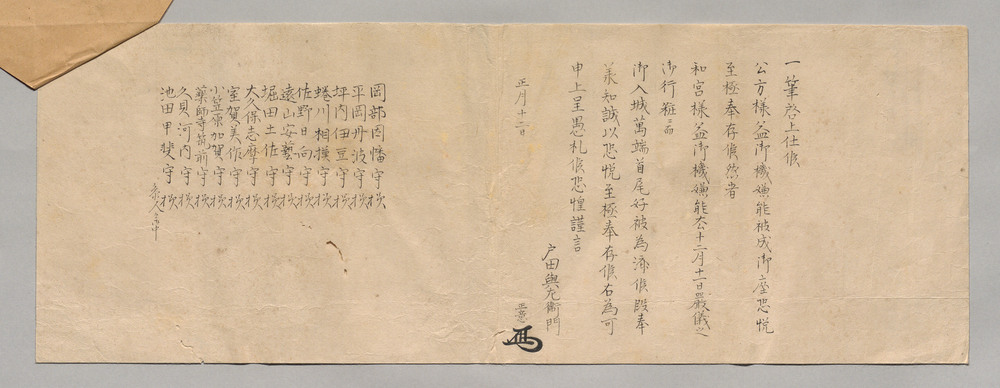 一筆啓上仕候
公方様益御機嫌能被成御座恐悦
至極奉存候然者
和宮様益御機嫌能去十二月十一日嚴儀之
御行粧而
御入城萬端首尾好被為濟候段奉
承知誠以恐悦至極奉存候右為可
申上呈愚札候恐惶謹言
戸田與左衛門
正月十二日
岡部因幡守様
平岡丹波守様
坪内伊豆守様
蜷川相摸守様
佐野日向守様
遠山安藝守様
堀田土佐守様
大久保志摩守様
室賀美作守様
小笠原加賀守様
藥師寺筑前守様
久貝河内守様
池田甲斐守様